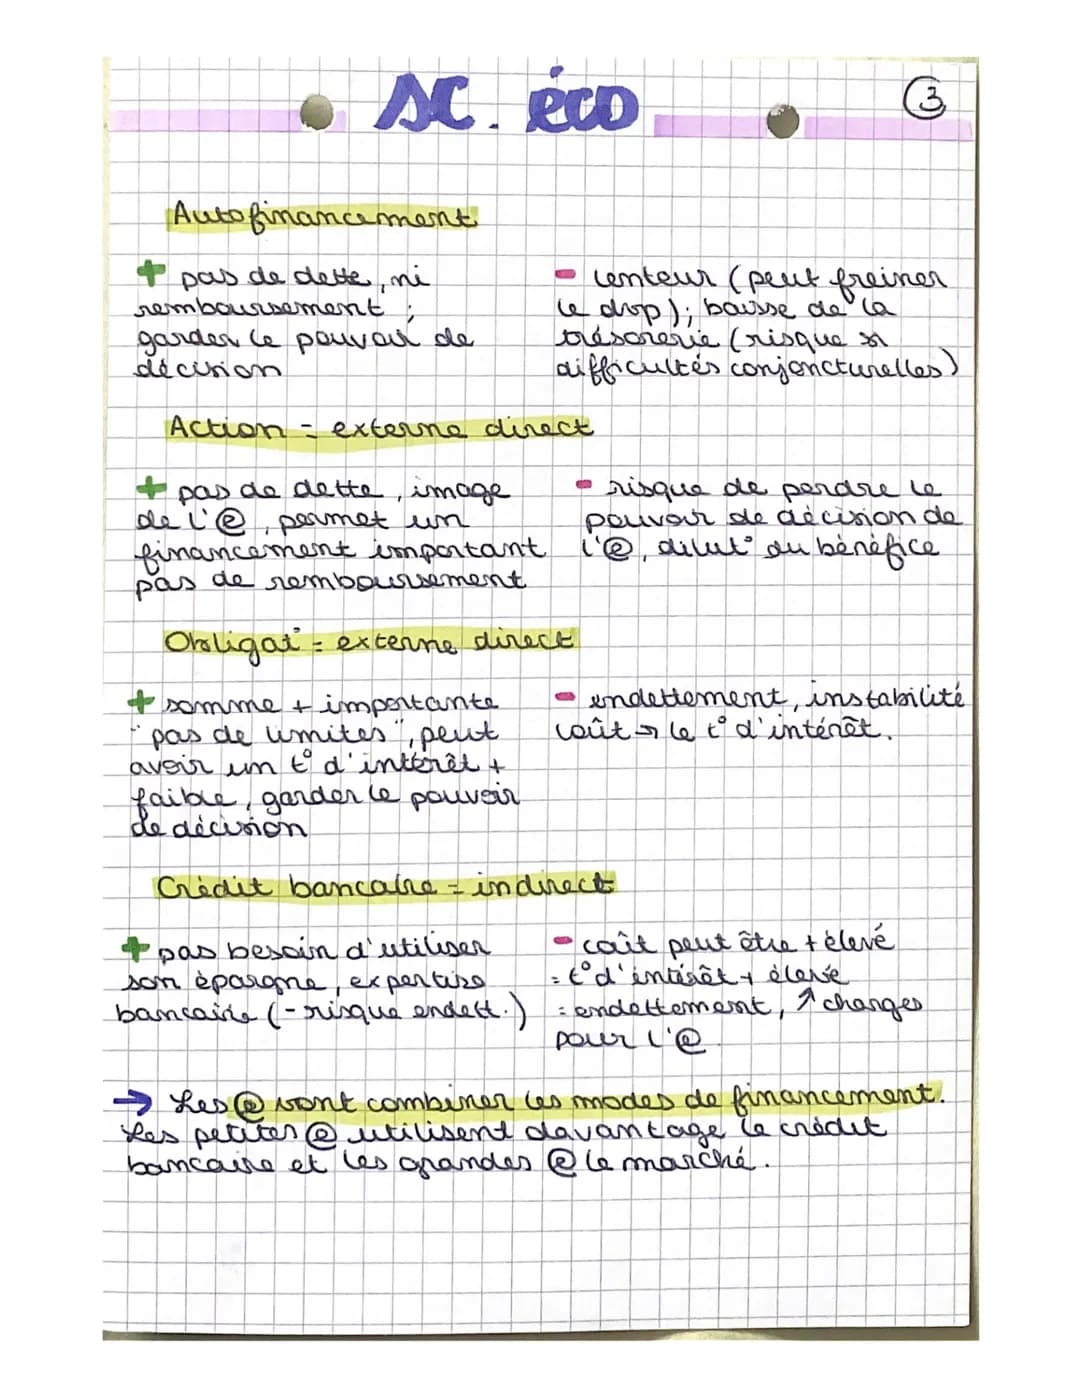 SC. éco
3
Autofinancement
+ pas de dette, ni
remboursement ;
garder le pouvoir de
décision
- lenteur (peut freiner
le dvp); baisse de la
trésorerie (risque si
difficultés conjoncturelles)
Action = externe direct
+ pas de dette, image
de l'@, permet un
financement important
pas de remboursement
- risque de perdre le
pouvoir de décision de
l'@, dilut° du bénéfice
Obligat° = externe direct
+ somme + importante
"pas de limites", peut
avoir un t° d'intérêt +
faible, garder le pouvoir
de décision
- endettement, instabilité
coût → le t° d'intérêt.
Crédit bancaire = indirect
+ pas besoin d'utiliser
son épargne, expertise
bancaire (- risque endett.)
- coût peut être + élevé
= t° d'intérêt + élevé
= endettement, ↑ charges
pour l'@
→ Les @ vont combiner les modes de financement.
Les petites @ utilisent davantage le crédit
bancaire et les grandes @ le marché.